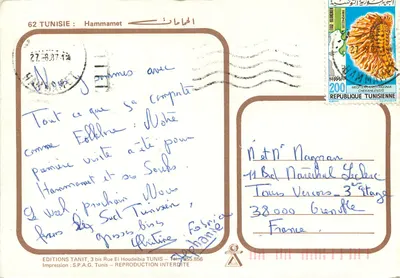 62 TUNISIE : Hammamet الحمامات
27-8.87-1
HAMMAMET
200
REPUBLIQUE TUNISIENNE
Nous y sommes avec
Tout ce que ça comporte
comme Folklore. Notre
première visite a été pour
Hammamet et ses Souks.
Le week prochain Nous
ferons le Sud Tunisien.
grosses bises
M et Mr Magnan
11 Bd Maréchal Leclerc
Tours Vercors - 3e Etage
38000 Grenoble
France.
EDITIONS TANIT, 3 bis Rue El Houdaibia TUNIS
Impression : S.P.A.G. Tunis - REPRODUCTION INTERDITE